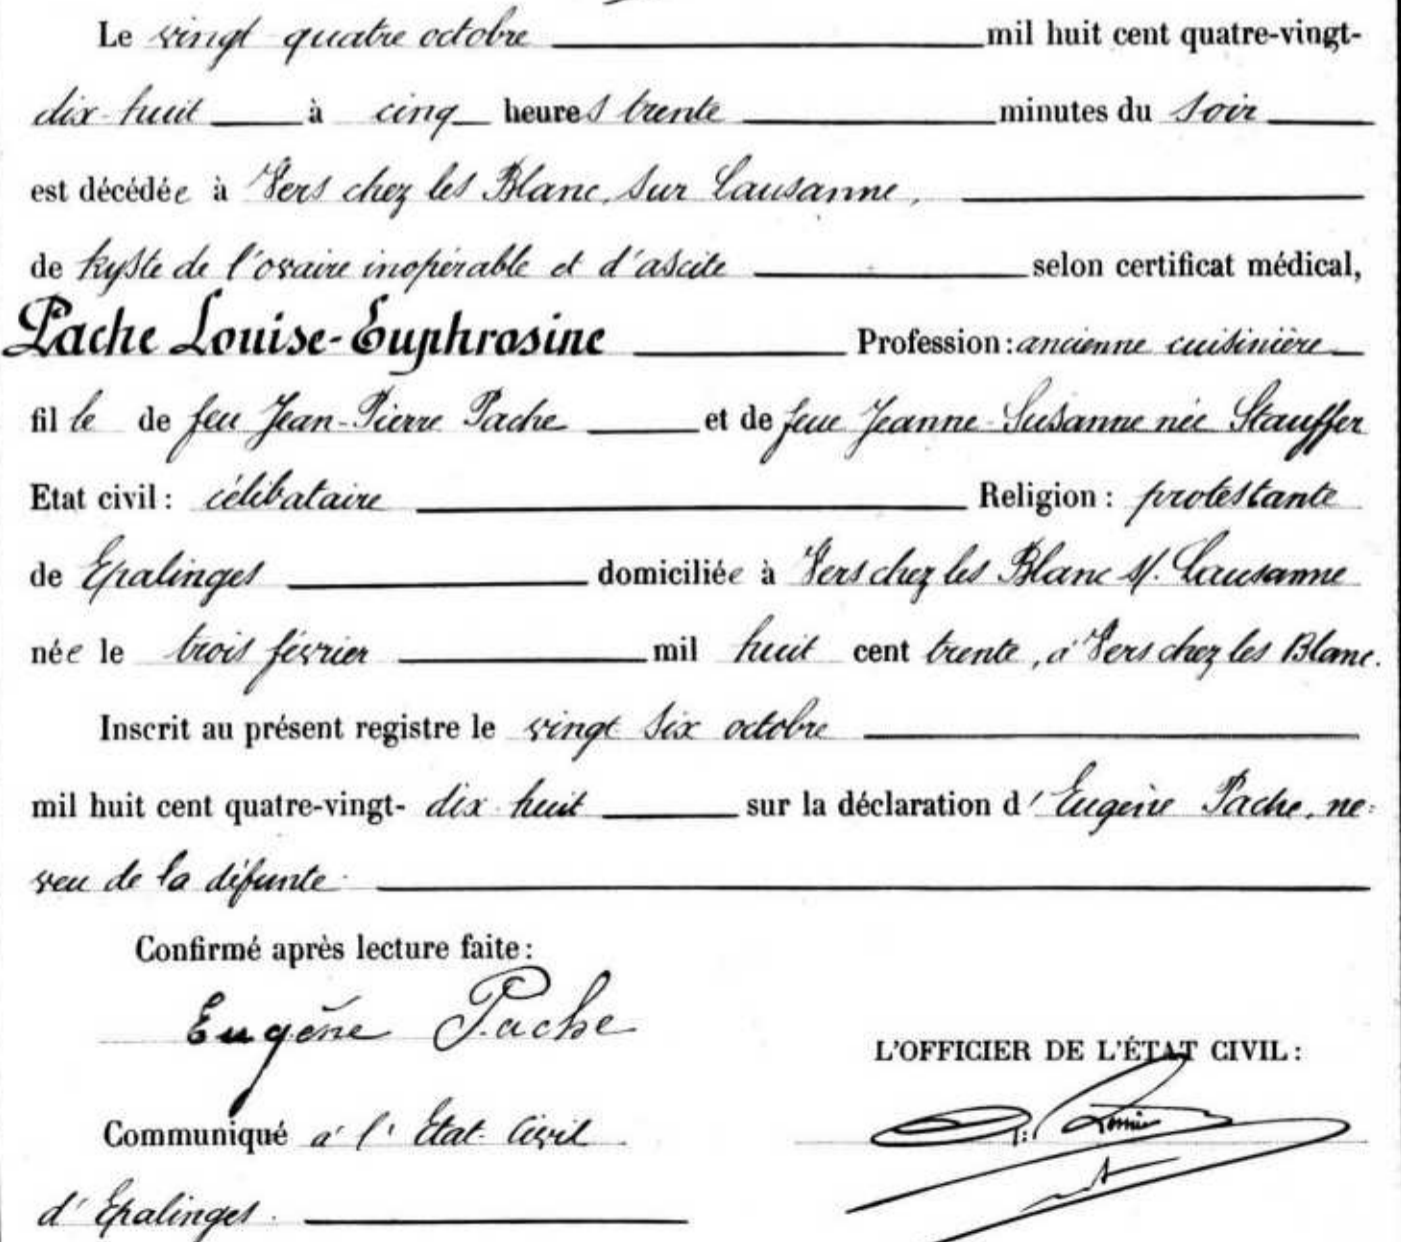 Le vingt quatre octobre mil huit cent quatre-vingt-
dix-huit à cinq heures trente minutes du soir
est décédée à Vers chez les Blanc, sur Lausanne,
de kyste de l'ovaire inopérable et d'ascite selon certificat médical,
Pache Louise-Euphrosine Profession : ancienne cuisinière
fille de feu Jean-Pierre Pache et de feue Jeanne-Susanne née Stauffer
Etat civil : célibataire Religion : protestante
de Epalinges domiciliée à Vers chez les Blanc s/. Lausanne
née le trois février mil huit cent trente, à Vers chez les Blanc.
Inscrit au présent registre le vingt six octobre
mil huit cent quatre-vingt- dix huit sur la déclaration d'Eugène Pache, ne=
veu de la défunte.
Confirmé après lecture faite :
Eugène Pache
L'OFFICIER DE L'ÉTAT CIVIL :
Communiqué à l'Etat Civil
d'Epalinges.